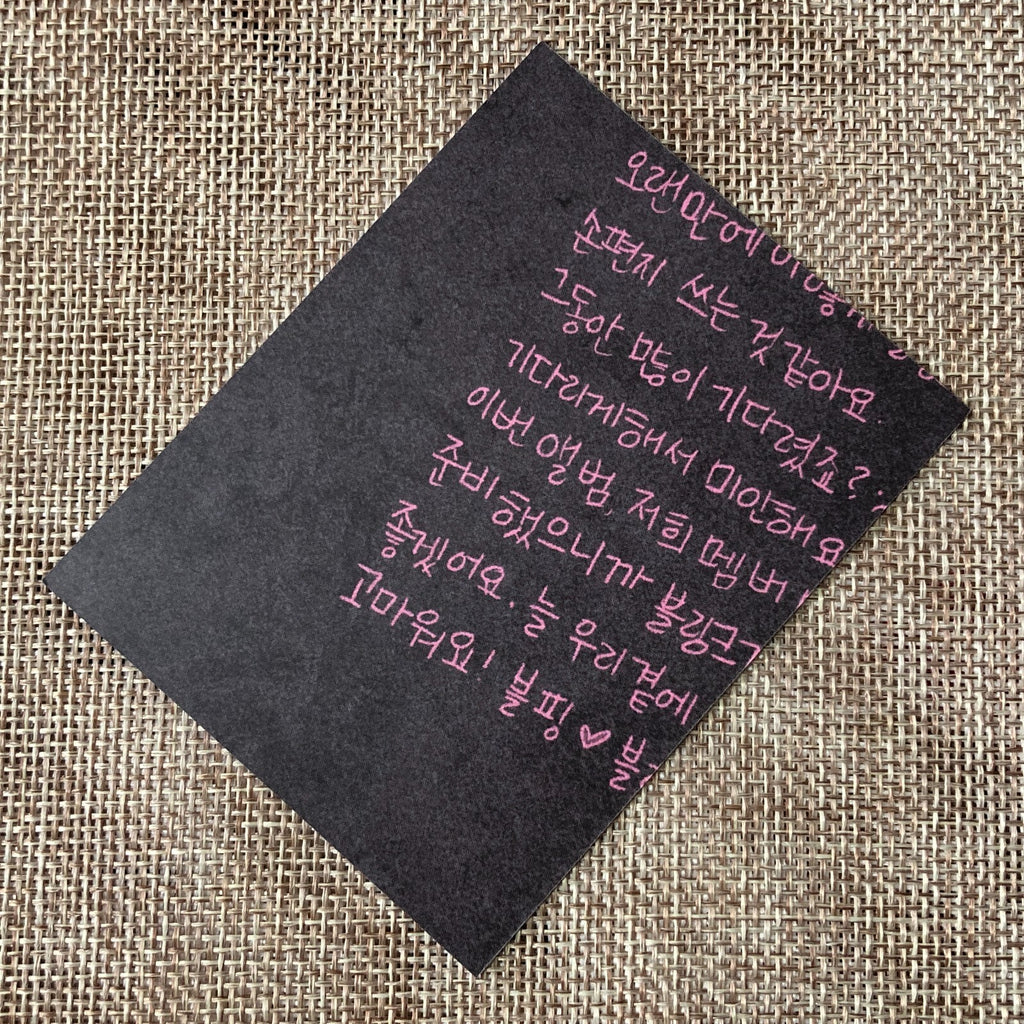 오랜만에 이렇게
손편지 쓰는 것 같아요.
그동안 많이 기다렸죠?
기다리게해서 미안해요
이번 앨범, 저희 멤버
준비했으니까 블링크
좋겠어요. 늘 우리곁에
고마워요! 블핑 ♥ 블